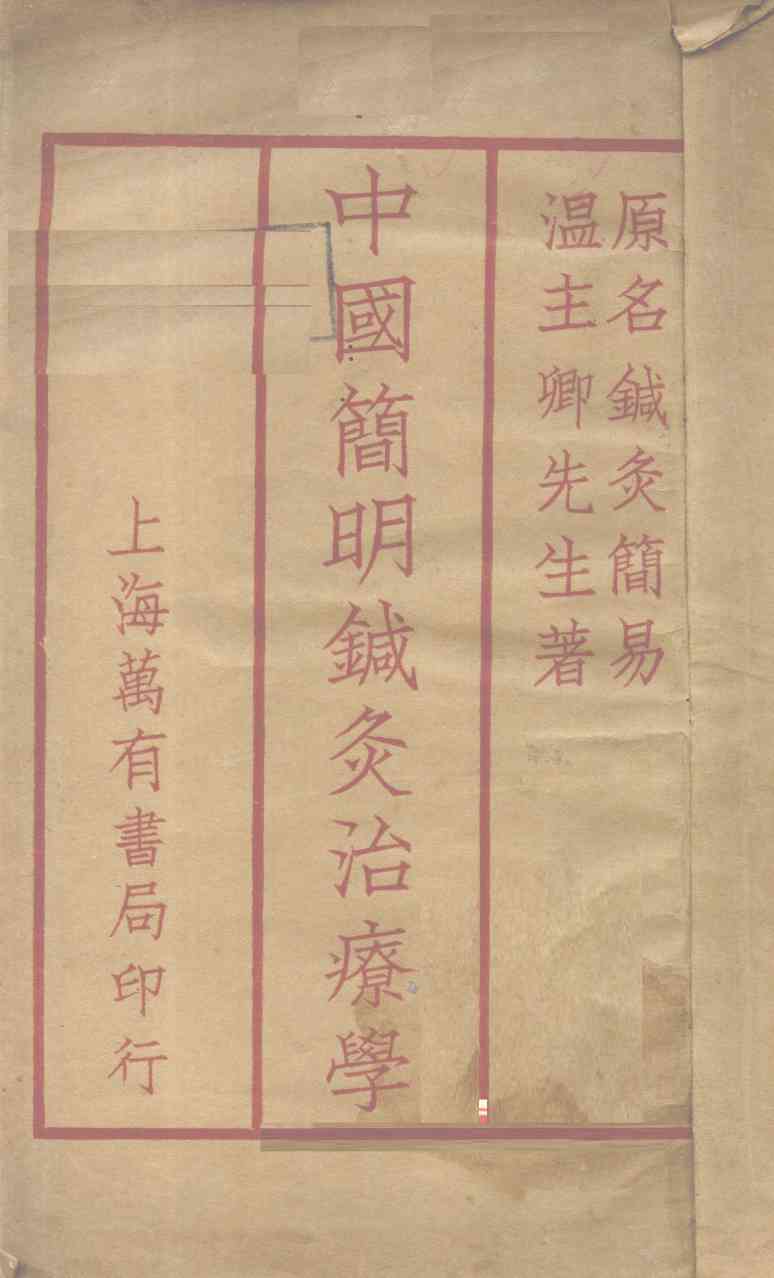 原名鍼灸簡易
溫主卿先生著
中國簡明鍼灸治療學
上海萬有書局印行